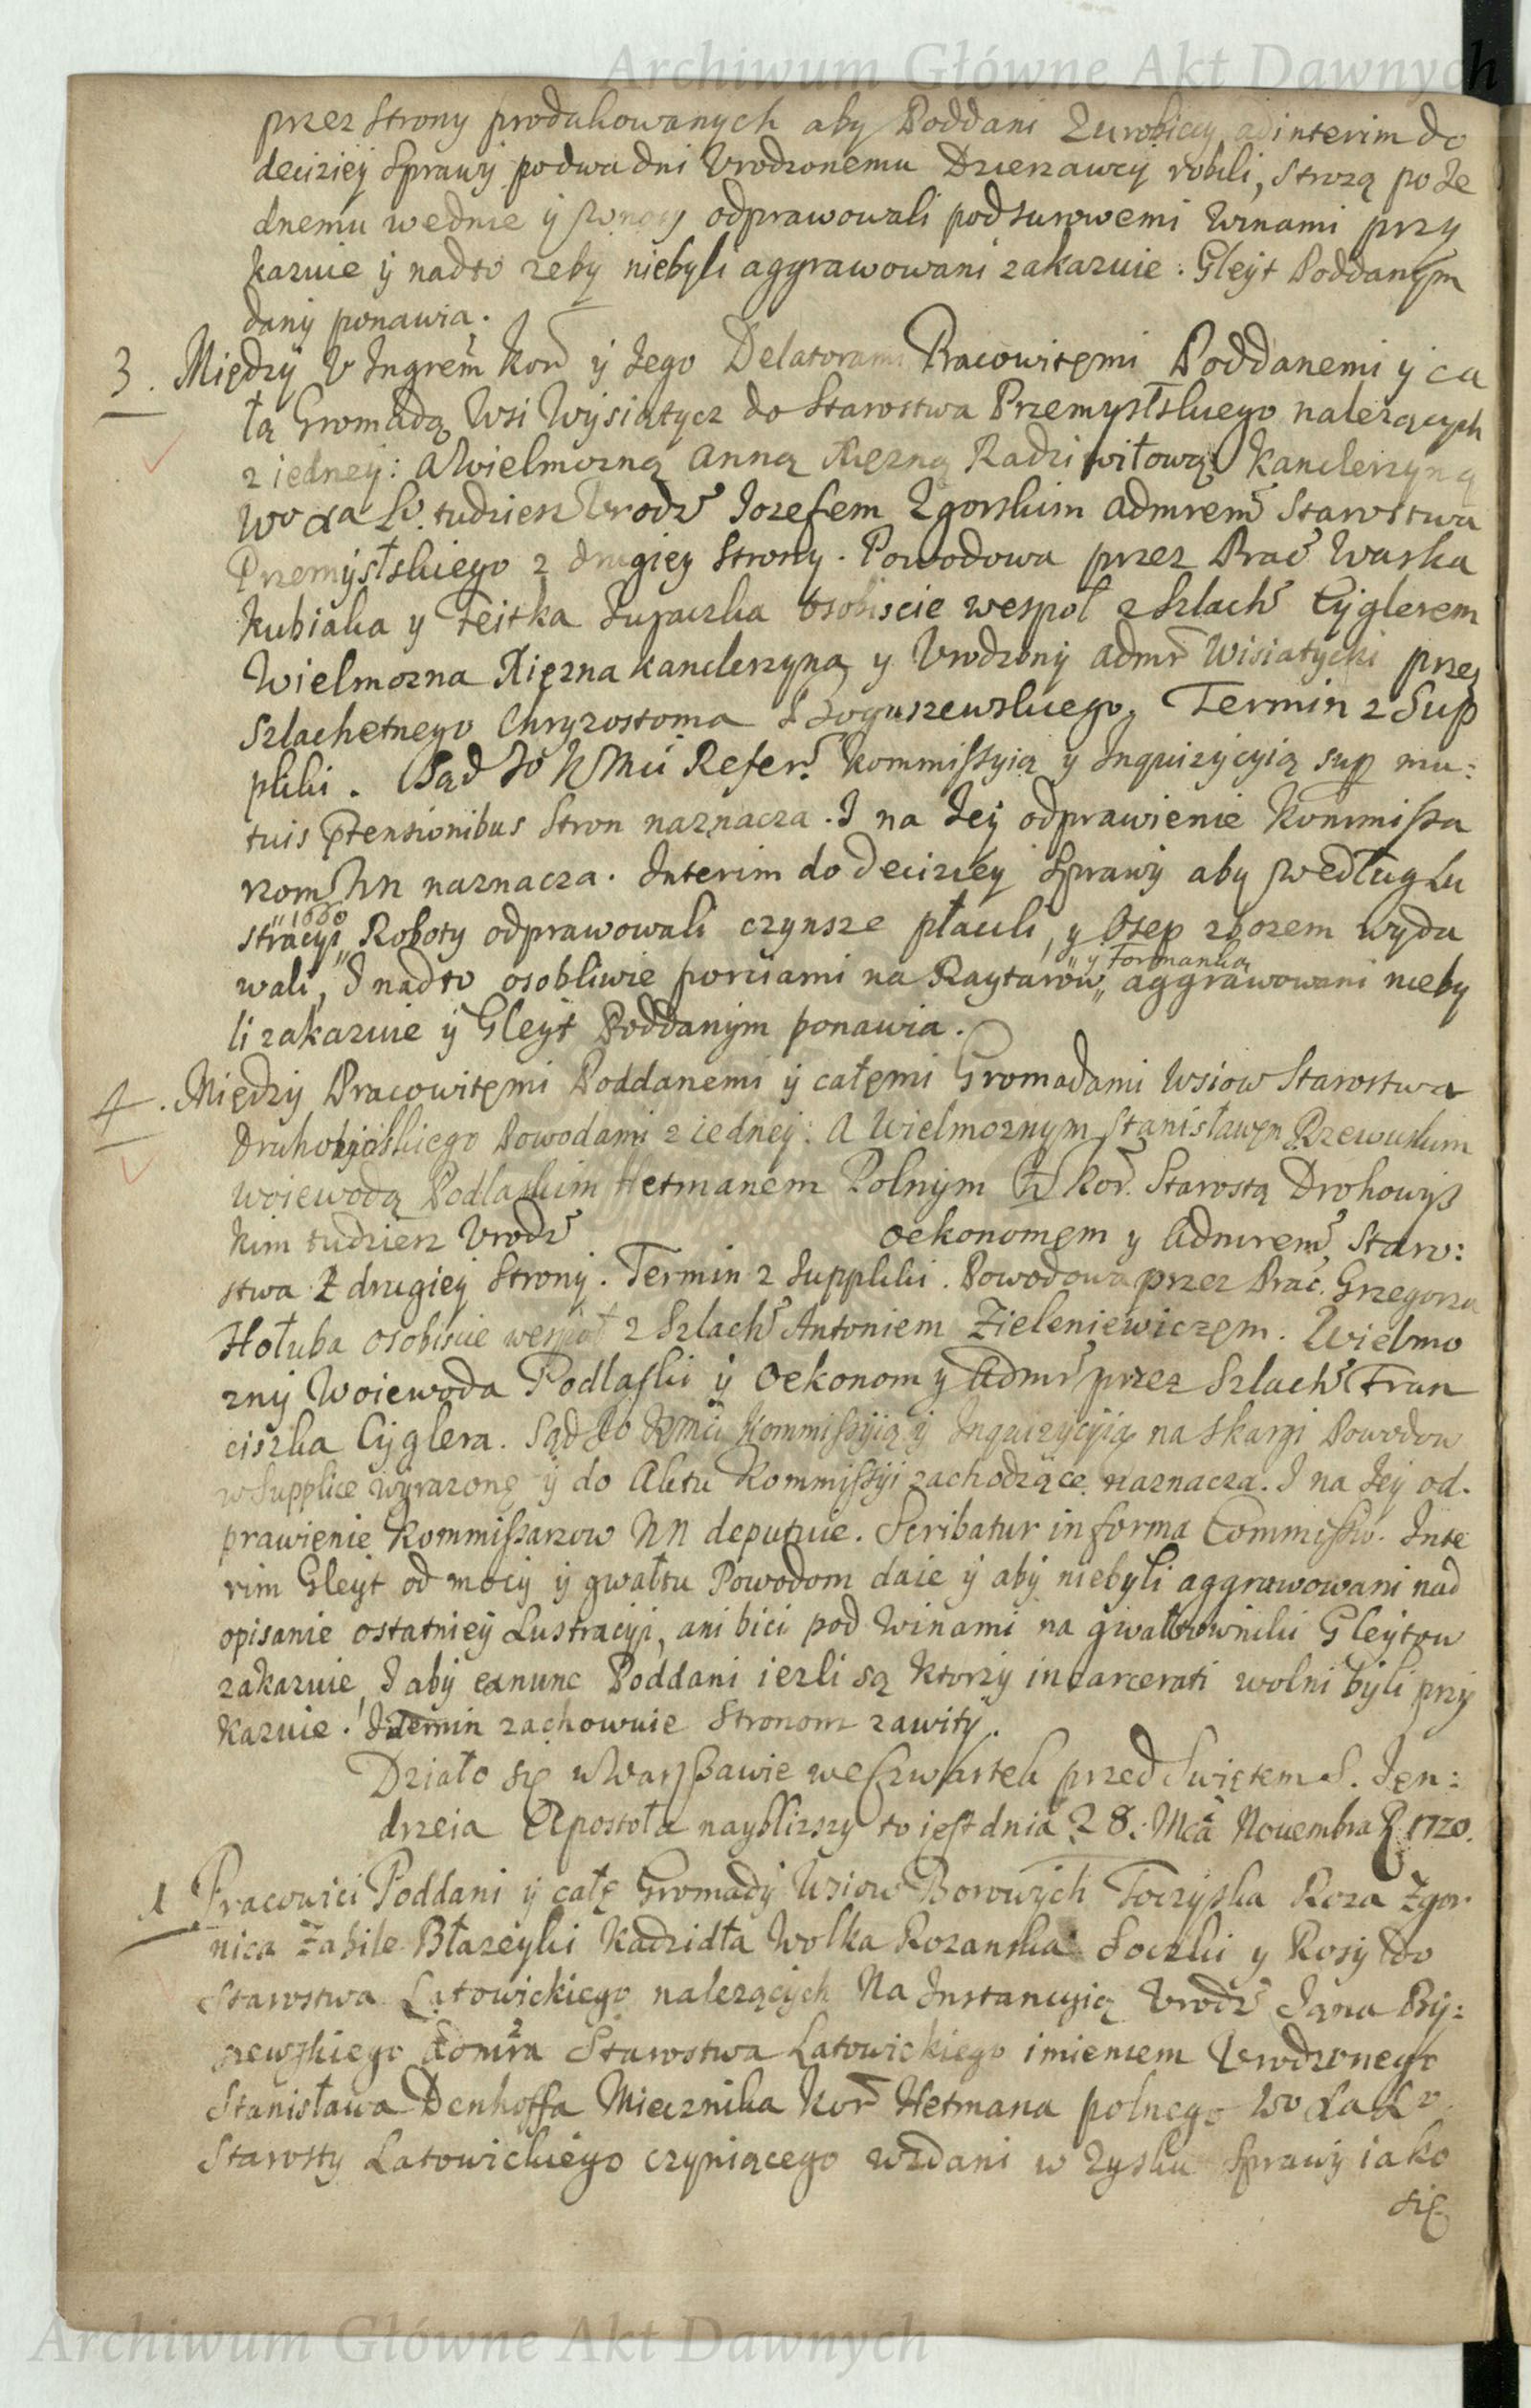 Archiwum Główne Akt Dawnych
przez Strony produkowanych aby Poddani Zurobiccy ad interim do
deciziey Sprawy po dwa dni Vrodzonemu Dzierzawcy robili, Strozą po Je
dnemu wednie y w nocy odprawowali pod surowemi winami przy
kazuie y nadto zeby niebyli aggrawowani zakazuie. Gleyt Poddanym
dany ponawia.
3. Między V Ingrem Kor y Jego Delatorami Pracowitęmi Poddanemi y ca
łą Gromadą Wsi Wysiątycz do Starostwa Przemysłskiego nalezących
z iedney: a Wielmozną Anną Xięzną Radziwiłową Kanclerzyną
W° Xa L° tudziesz Vrodz Jozefem Zgorskim Admrem Starostwa
Przemysłskiego z drugiey Strony. Powodowa przez Prac Waska
Kubiaka y Feitka osobiscie wespoł z Szlach Cyglerem
Wielmozna Xięzna Kanclerzyna y Vrodzony Admr Wisiatycki przez
Szlachetnego Chryzostoma Boguszewskiego. Termin z Sup
pliki. Sąd Jo K Mci Refer. Kommissyią y Inquizycyią sup mu:
tuis ptensionibus Stron naznacza. I na Jey odprawienie Kommissa
rzom NN naznacza. Interim do Deciziey Sprawy aby według Lu
stracyi " 1660 " Roboty odprawowali czynsze płacili, y Osep zbozem wyda
wali, I nadto osobliwie porciami na Raytarow " y formanką " aggrawowani nieby
li zakazuie y Gleyt Poddanym ponawia.
4. Między Pracowitęmi Poddanemi y całęmi Gromadami Wsiow Starostwa
Drohobyckiego Powodami z iedney: A Wielmoznym Stanisławem Rzewuskim
Woiewodą Podlaskim Hetmanem Polnym W Kor. Starostą Drohowys
kim tudziesz Vrodz oekonomem y Admrem Staro:
stwa z drugiey Strony. Termin z Suppliki. Powodowa przez Prac. Grzegorza
Hołuba osobiscie wespoł z Szlach Antoniem Zieleniewiczem. Wielmo
zny Woiewoda Podlaski y Oekonom y Admr przez Szlach Fran
ciszka Cyglera. Sąd Jo K Mci Kommissyią y Inquizycyią na skargi Powodow
w Supplice wyrazonę y do Aktu Kommissyi zachodzącę naznacza. I na Jey od.
prawienie Kommissarzow NN deputuie. Scribatur in forma Commissio. Inte
rim Gleyt od mocy y gwałtu Powodom daie y aby niebyli aggrawowani nad
opisanie ostatniey Lustracyi, ani bici pod winami na gwałtownikı Gleytow
zakazuie, I aby exnunc Poddani iezli są ktorzy incarcerati wolni byli przy
kazuie. I Termin zachowuie Stronom zawity.
Działo się w Warszawie we Czwartek przed Swiętem S. Jęn:
drzeia Apostoła nayblizszy to iest dnia 28. Mca Novembra R 1720.
1 Pracowici Poddani y całę Gromady Wsiow Borowych Toczyska Roza Zgor
nica Zabile Błazeyki Kadzidła Wolka Rozanska Soczki y Rosy do
Starostwa Latowickiego nalezących Na Instancyią Vrodz Jana Bry:
szewskiego Admra Starostwa Latowickiego imieniem Vrodzonego
Stanisława Denhoffa Miecznika Kor Hetmana polnego W° Xa L°
Starosty Latowickiego czyniącego wzdani w Zysku Sprawy iako
się
Archiwum Główne Akt Dawnych